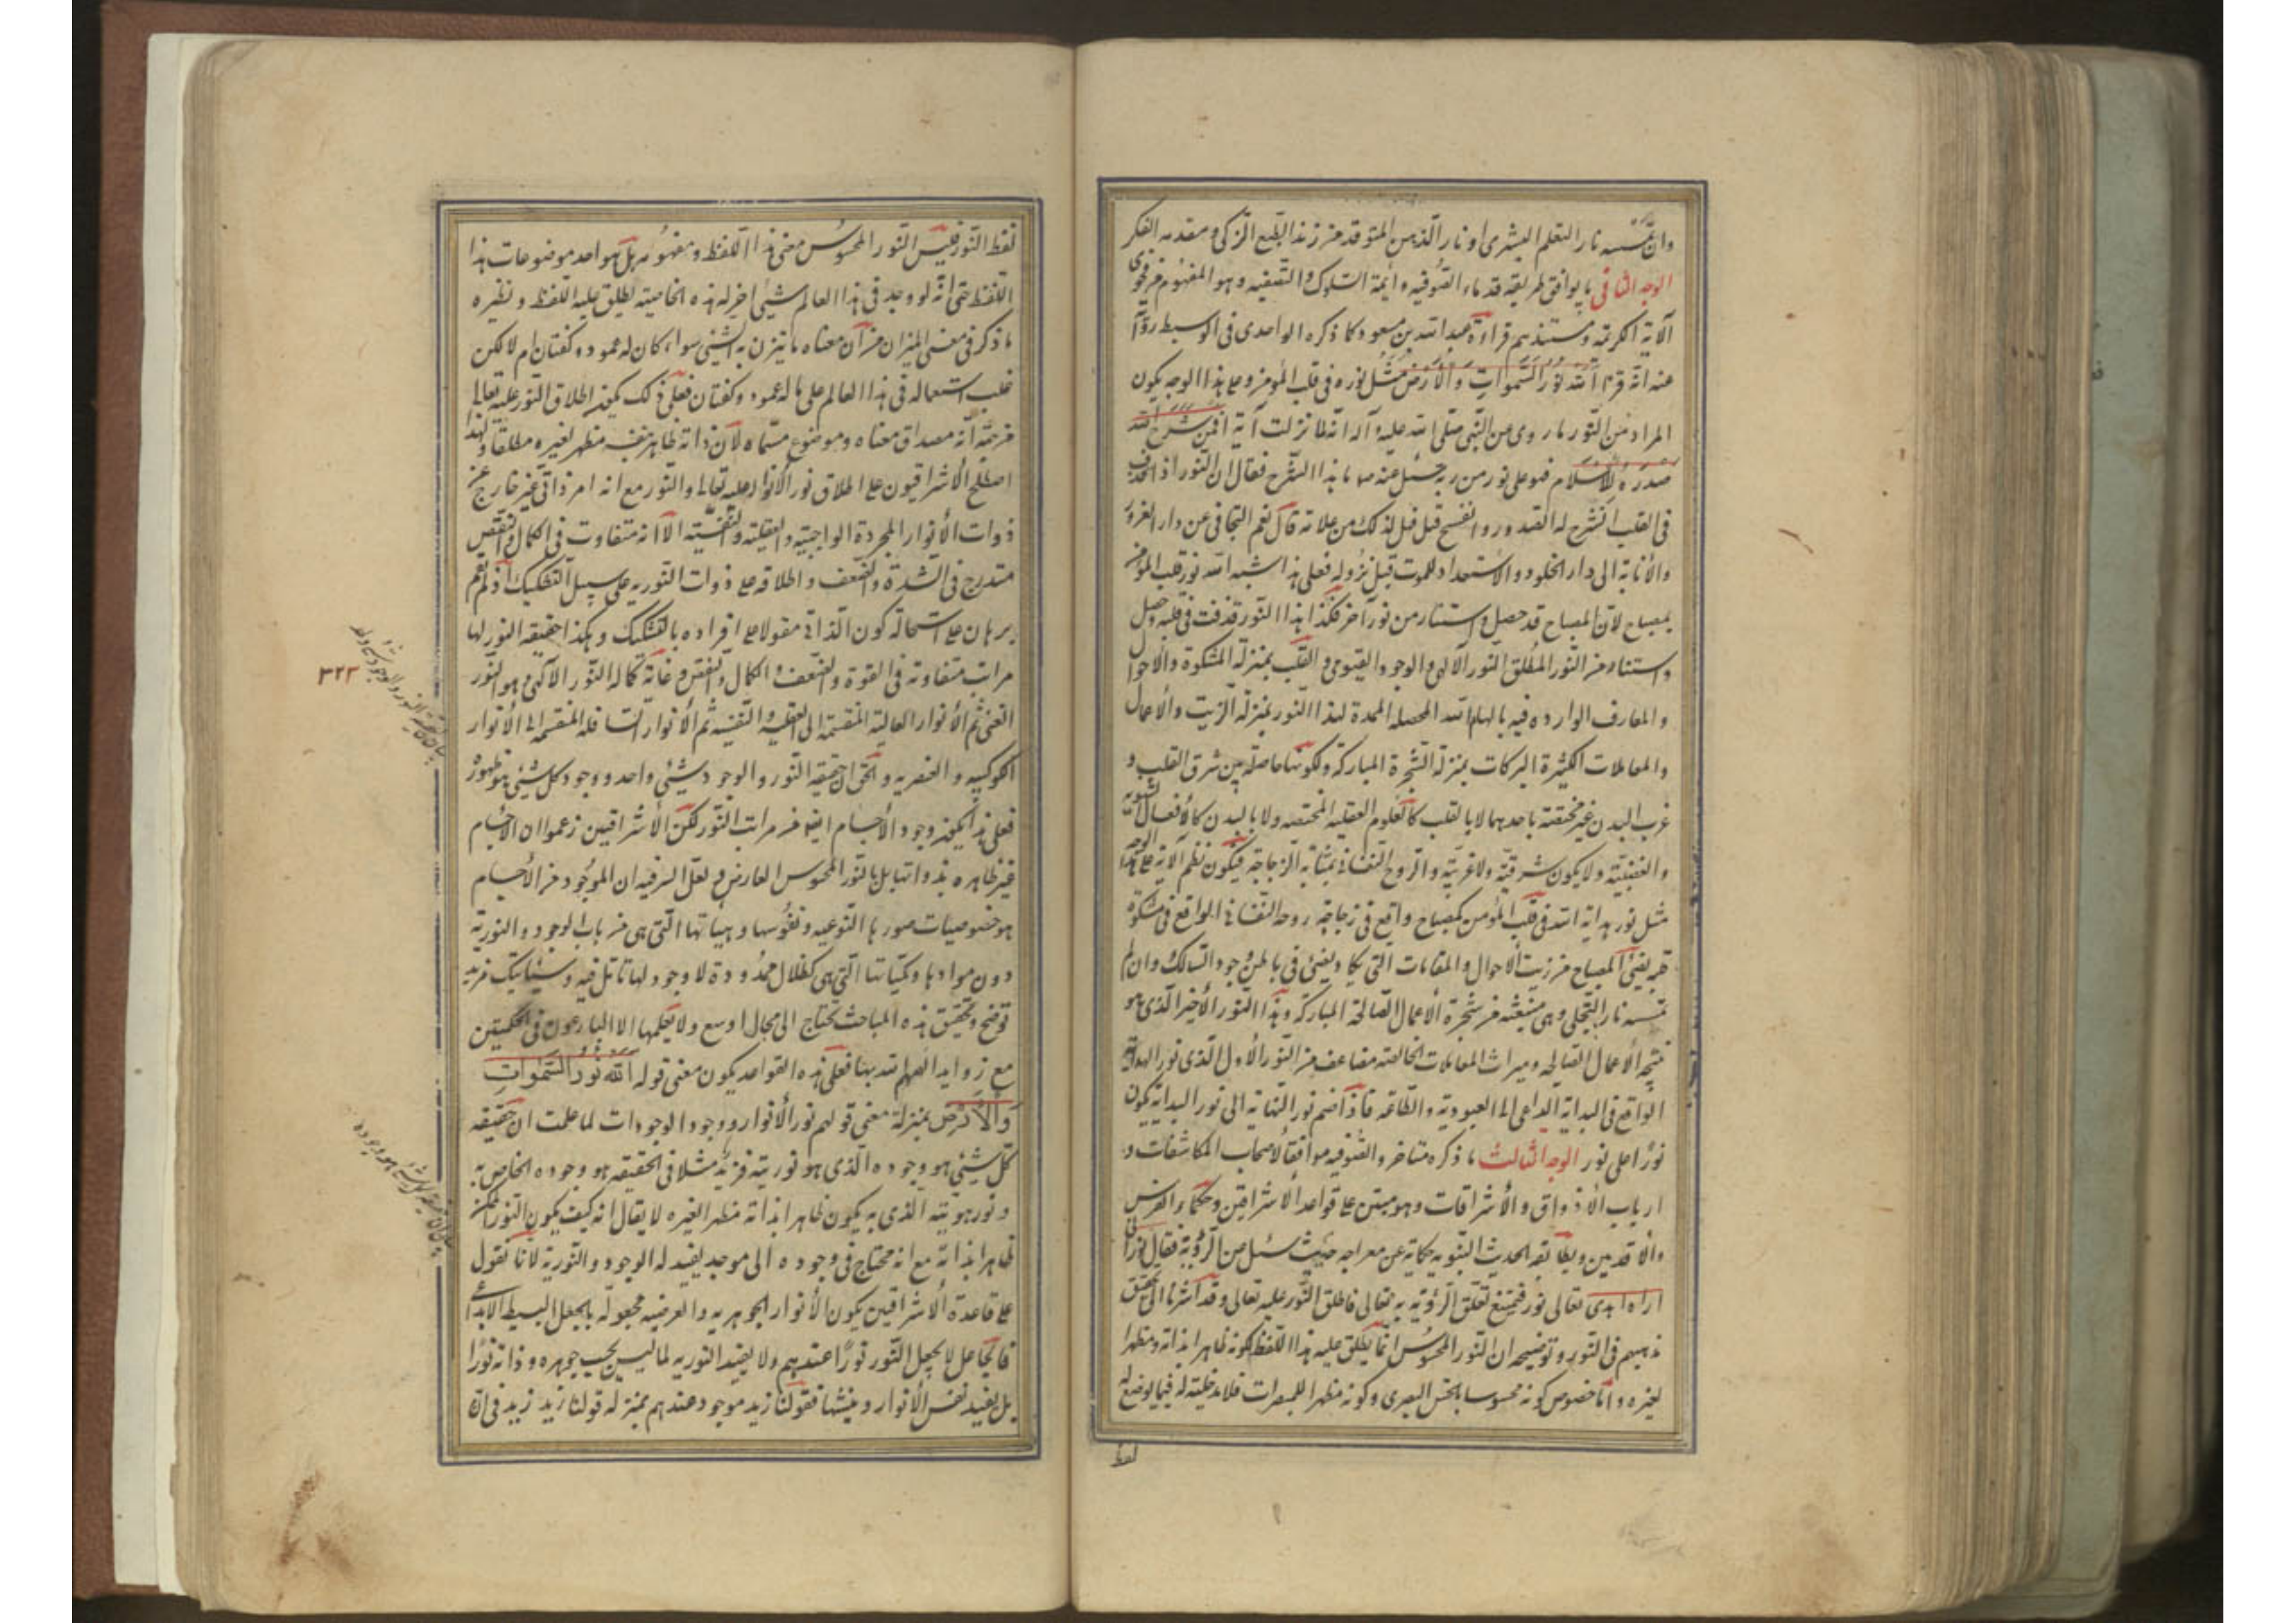 وان لم تمسسه نار التعلم البشرى او نار الذهن المتوقد من زند الطبع الزكى ومقدمه الفكر
الوجه الثانى ما يوافق طريقة قدماء الصوفيه وأئمة السلوك والتصفيه وهو المفهوم من فحوى
الآية الكريمة ومستندهم قراءة عبد الله بن مسعود كما ذكره الواحدى فى الوسيط رواه
عنه انه قرء الله نور السموات والارض مثل نوره فى قلب المؤمن وعلى هذا الوجه يكون
المراد من النور ما روى عن النبى صلى الله عليه وآله انه لما نزلت آية افمن شرح الله
صدره للاسلام فهو على نور من ربه سئل عنه ص ما هذا الشرح فقال ان النور اذا قذف
فى القلب انشرح له الصدور وانفسح قيل فهل لذلك من علامة قال نعم التجافى عن دار الغرور
والأنابة الى دار الخلود والاستعداد للموت قبل نزوله فعلى هذا شبه الله نور قلب المؤمن
بمصباح لان المصباح قد حصل واستنار من نور آخر فكذا هذا النور قذفت فى قلبه وحصل
واستناد من النور المطلق النور الالهى والوجود القيومى والقلب بمنزلة المشكوة والاحوال
والمعارف الوارده فيه بالهام الله المحصله الممدة لهذا النور بمنزلة الزيت والاعمال
والمعاملات الكثيرة البركات بمنزلة الشجرة المباركة ولكونها حاصلة بين شرق القلب و
غرب البدن غير مختصة باحدهما لا بالقلب كالعلوم العقليه المختصه ولا بالبدن كالأفعال الشهويه
والغضبية ولا يكون شرقية ولا غربية والروح النفسانى بمثابة الزجاجة فيكون نظم الآية على هذا الوجه
مثل نور هداية الله فى قلب المؤمن كمصباح واقع فى زجاجة روحه النفسانى الواقع فى مشكوة
يضئ المصباح من زيت الاحوال والمقامات التى يكاد يضئ فى باطن وجود السالك وان لم
تمسسه نار التجلى وهى منبعثه من شجرة الأعمال الصالحة المباركة وهذا النور الأخير الذى هو
نتيجه الأعمال الصالحه وميراث المعاملات الخالصه مضاعف من النور الأول الذى نور الهداية
الواقع فى البداية الداعى الى العبودية والطاعه فاذا ضم نور النهاية الى نور البداية يكون
نورا على نور الوجه الثالث ما ذكره متأخروا الصوفيه موافقا لاصحاب المكاشفات و
ارباب الأذواق والأشراقات وهو مبتن على قواعد الاشراقين وحكماء الفرس
والاقدمين ويطابقه الحديث النبويه حكاية عن معراجه حيث سئل عن الرؤية فقال نور انى
اراه اى تعالى نور فيمتنع تعلق الرؤية به تعالى فاطلق النور عليه تعالى وقد اشرنا الى تحقق
مذهبهم فى النور وتوضيحه ان النور المحسوس انما يطلق عليه هذا اللفظ لكونه ظاهرا بذاته ومظهرا
لغيره واما خصوص كونه محسوسا بالحس البصرى وكونه مظهرا للمبصرات فلا مدخلية له فيما يوضع له
لفظ
لفظ النور فليس النور المحسوس معنى هذا اللفظ ومفهومه بل هو احد موضوعات هذا
اللفظ حتى انه لو وجد فى هذا العالم شئ اخر له هذه الخاصية يطلق عليه اللفظ ونظيره
ما ذكر فى معنى الميزان من ان معناه ما يتزن به الشئ سواء كان له عمود وكفتان ام لا لكن
غلب استعماله فى هذا العالم على ما له عمود وكفتان فعلى ذلك يمكن اطلاق النور عليه تعالى
من جهة انه مصداق معناه وموضوع مسماه لان ذاته ظاهر بنفسه مظهر لغيره مطلقا ولهذا
اصطلح الأشراقيون على اطلاق نور الأنوار عليه تعالى والنور مع انه امر ذاتى غير خارج عن
ذوات الأنوار المجردة الواجبية والعقلية والنفسية الا انه متفاوت فى الكمال والنقص
متدرج فى الشدة والضعف واطلاقه على ذوات النوريه على سبيل التشكيك اذ لم يقم
برهان على استحالة كون الذاتى مقولا على افراده بالتشكيك وهكذا حقيقة النور لها
مراتب متفاوته فى القوة والضعف والكمال والنقص وغاية كماله النور الالهى وهو النور
الغنى ثم الأنوار العالية المنقسمة الى العقليه والنفسيه ثم الأنوار السافله المنقسمه الى الأنوار
الكوكبيه والعنصريه والحق ان حقيقة النور والوجود شيئ واحد ووجود كل شيئ هو ظهوره
فعلى هذا يمكن وجود الأجسام ايضا من مراتب النور لكن الأشراقيين زعموا ان الأجسام
غير ظاهره بذواتها بل بالنور المحسوس العارض ولعل السر فيه ان الموجود من الأجسام
هو خصوصيات صورها النوعيه ونفوسها وهيئاتها التى هى من باب الوجود والنورية
دون موادها وكمياتها التى هى كظلال ممدودة لا وجود لها تأمل فيه وسيأتيك مزيد
توضح وتحقيق هذه المباحث تحتاج الى مجال اوسع ولا يعلمها الا البارعون فى الحكمتين
مع زوايد الهم الله بنا فعلى هذه القواعد يكون معنى قوله الله نور السموات
والارض بمنزلة معنى قولهم نور الأنوار ووجود الوجودات لما علمت ان حقيقه
كل شيئ هو وجوده الذى هو نوريته فزيد مثلا فى الحقيقه هو وجوده الخاص به
ونور هويته الذى به يكون ظاهرا بذاته مظهرا لغيره لا يقال انه كيف يكون النور الممكن
ظاهرا بذاته مع انه محتاج فى وجوده الى موجد يفيد له الوجود والنورية لانا نقول
على قاعدة الاشراقيين يكون الأنوار الجوهريه والعرضيه مجعوله بالجعل البسيط الابداعى
فالجاعل لا يجعل النور نورا عندهم ولا يفيد النوريه لما ليس بحسب جوهره وذاته نورا
بل يفيد نفس الأنوار وينشئها فقولنا زيد موجود عندهم بمنزله قولنا زيد زيد فى ان
٣٢٣